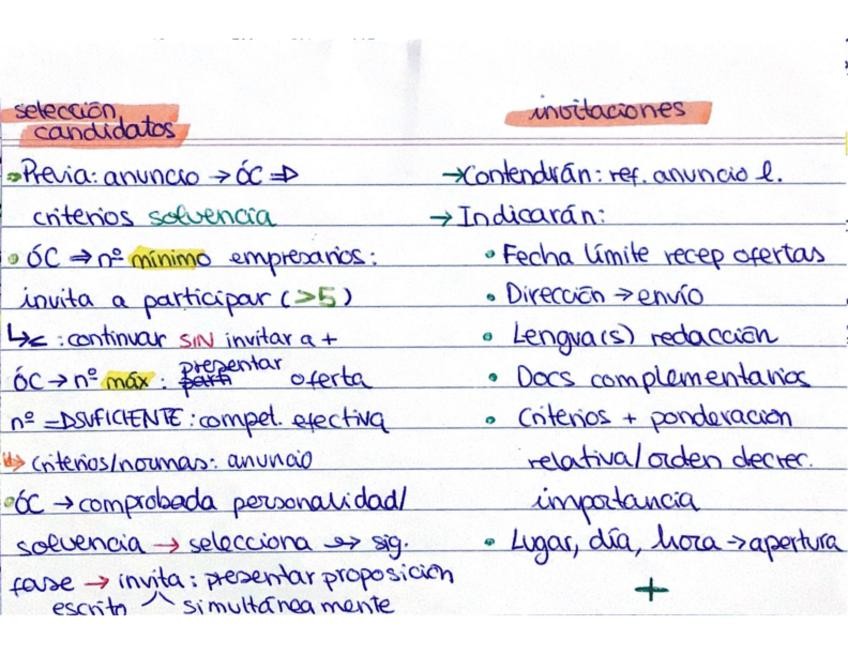 selección
candidatos
Previa: anuncio → ÓC ⇒
criterios solvencia
ÓC ⇒ nº mínimo empresarios:
invita a participar (>5)
↳< : continuar SIN invitar a +
ÓC → nº máx : presentar oferta
nº ⇒ SUFICIENTE : compet. efectiva
↳ criterios/normas: anuncio
ÓC → comprobada personalidad/
solvencia → selecciona ↔ sig.
fase → invita : presentar proposición
escrito ^ simultáneamente
invitaciones
→ Contendrán: ref. anuncio l.
→ Indicarán:
• Fecha límite recep ofertas
• Dirección → envío
• Lengua(s) redacción
• Docs complementarios
• Criterios + ponderación
relativa/orden decrec.
importancia
• Lugar, día, hora → apertura
+